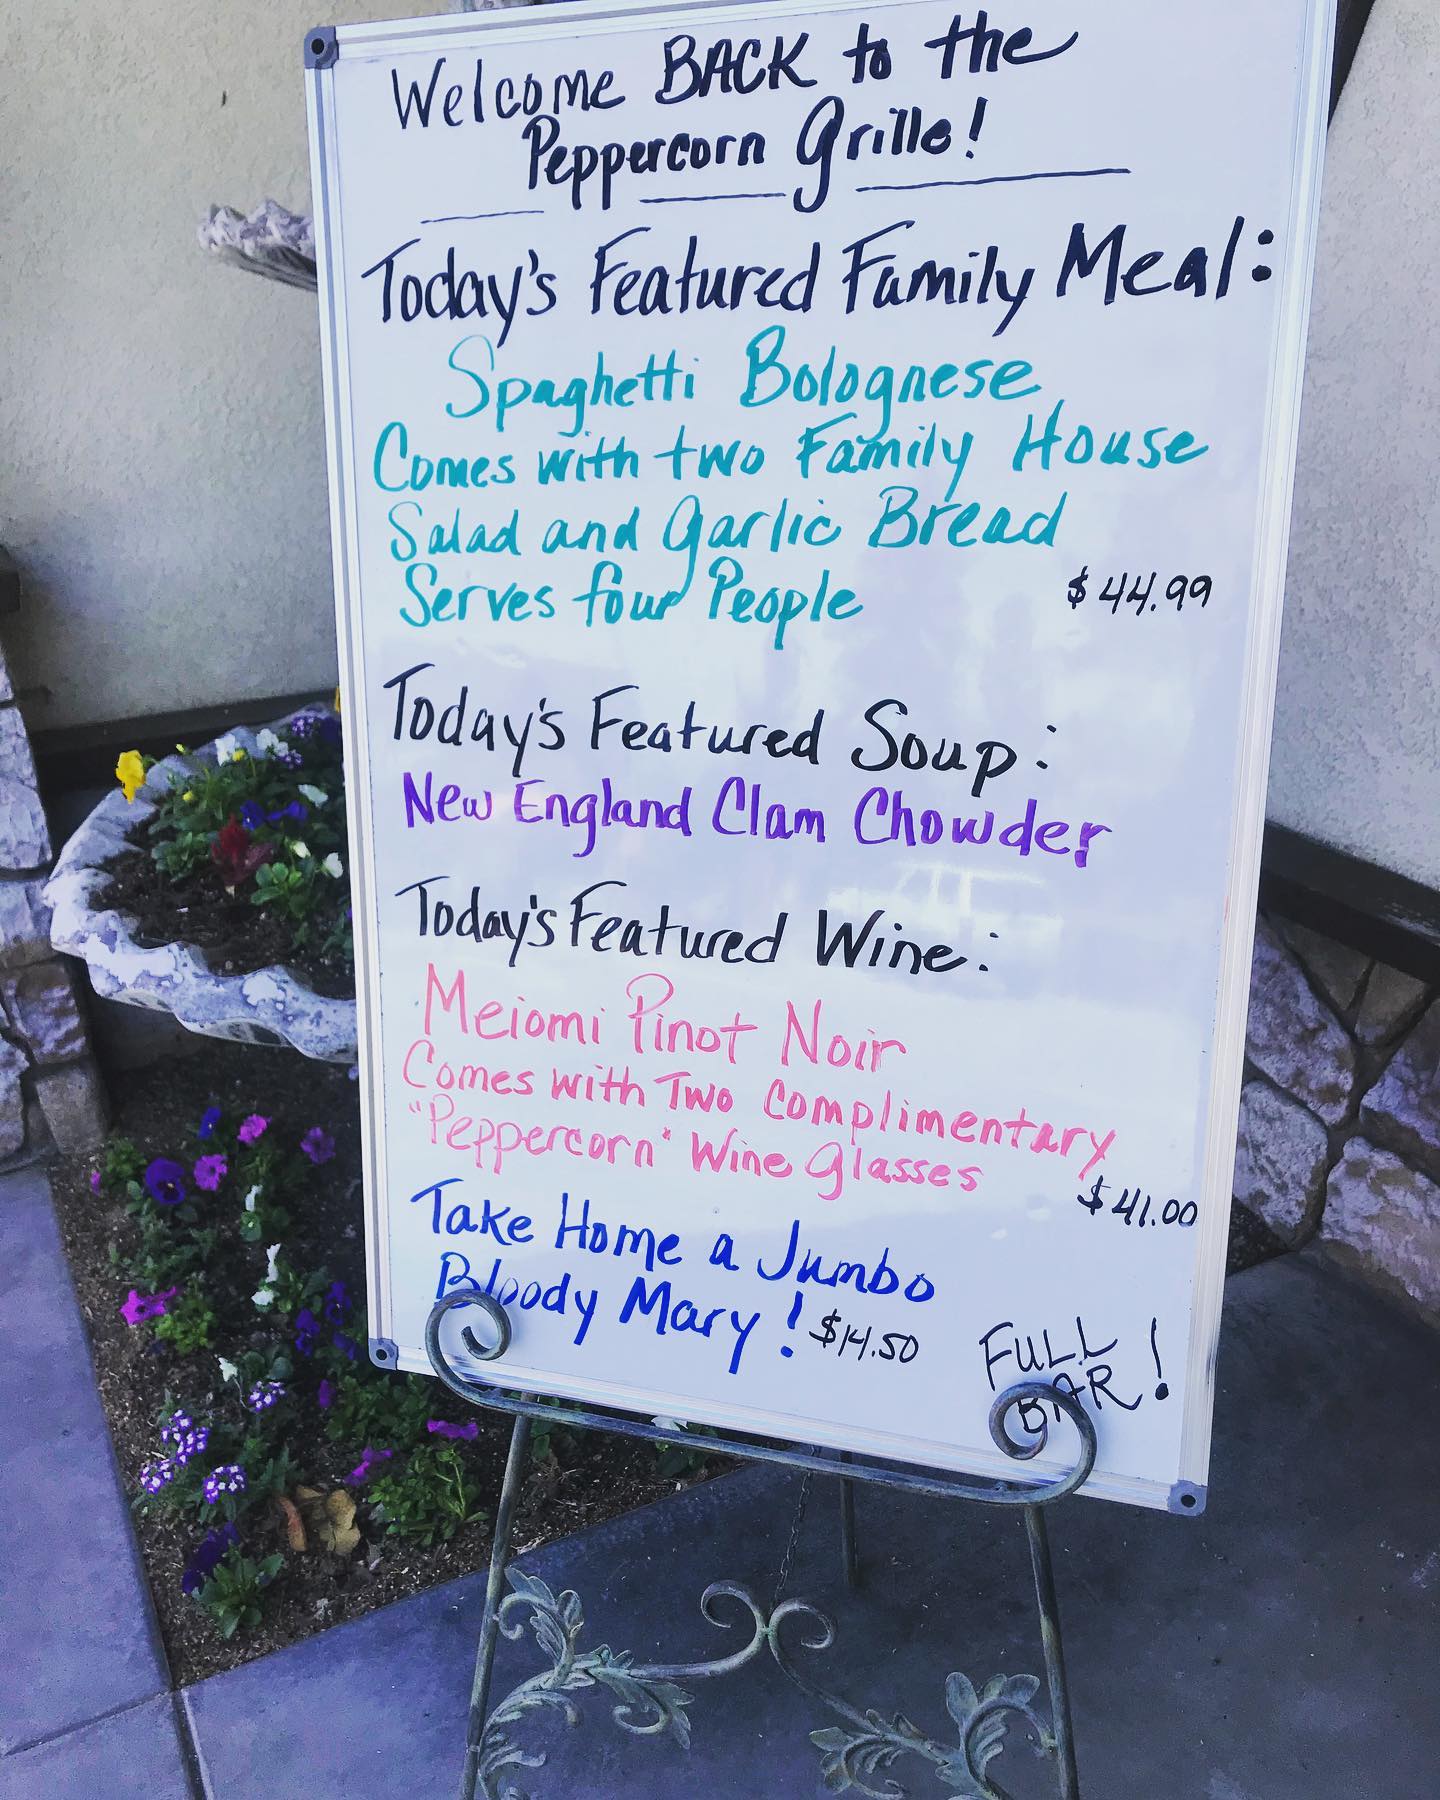 Welcome BACK to the
Peppercorn Grille!
Today's Featured Family Meal:
Spaghetti Bolognese
Comes with two Family House
Salad and Garlic Bread
Serves four People $44.99
Today's Featured Soup:
New England Clam Chowder
Today's Featured Wine:
Meiomi Pinot Noir
Comes with Two Complimentary
"Peppercorn" Wine Glasses
$41.00
Take Home a Jumbo
Bloody Mary! $14.50
FULL
BAR!